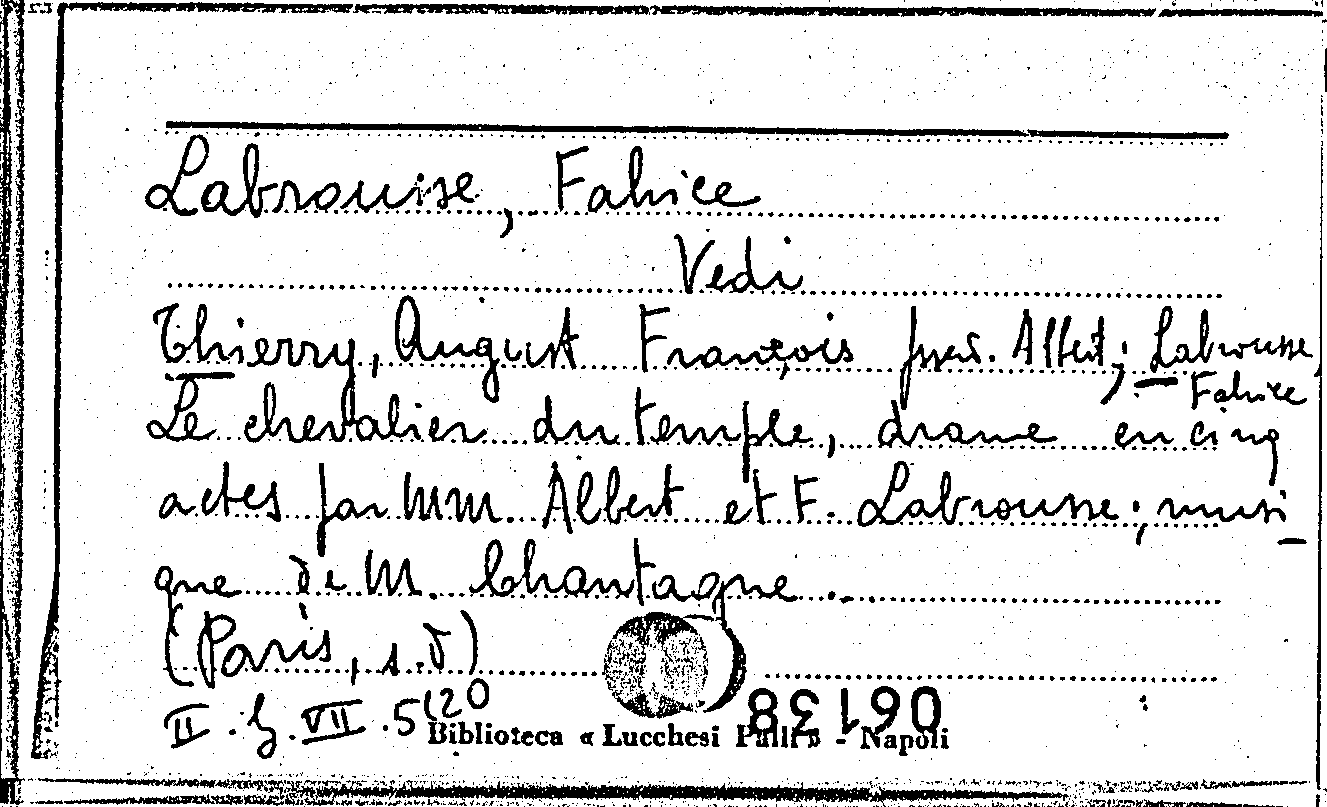 Labrousse, Fabrice
Vedi
Thierry, August François pseud. Albert; Labrousse,
Fabrice
Le chevalier du temple, drame en cinq
actes par MM. Albert et F. Labrousse; musi
que de M. Chantagne...
(Paris, s.d)
II. G. VII. 5(20
06138
Biblioteca « Lucchesi Palli » - Napoli